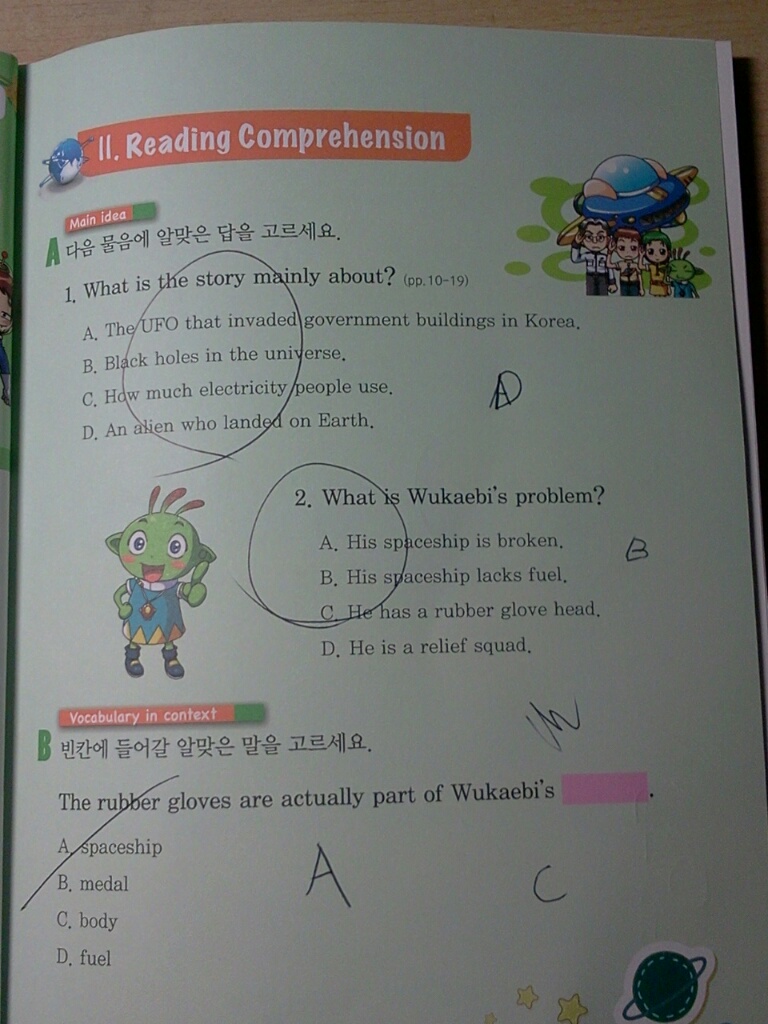 II. Reading Comprehension
Main idea
A 다음 물음에 알맞은 답을 고르세요.
1. What is the story mainly about? (pp.10-19)
A. The UFO that invaded government buildings in Korea.
B. Black holes in the universe.
C. How much electricity people use.
D. An alien who landed on Earth.
D
2. What is Wukaebi's problem?
A. His spaceship is broken.
B. His spaceship lacks fuel.
C. He has a rubber glove head.
D. He is a relief squad.
B
Vocabulary in context
B 빈칸에 들어갈 알맞은 말을 고르세요.
The rubber gloves are actually part of Wukaebi's .
A. spaceship
B. medal
C. body
D. fuel
A
C